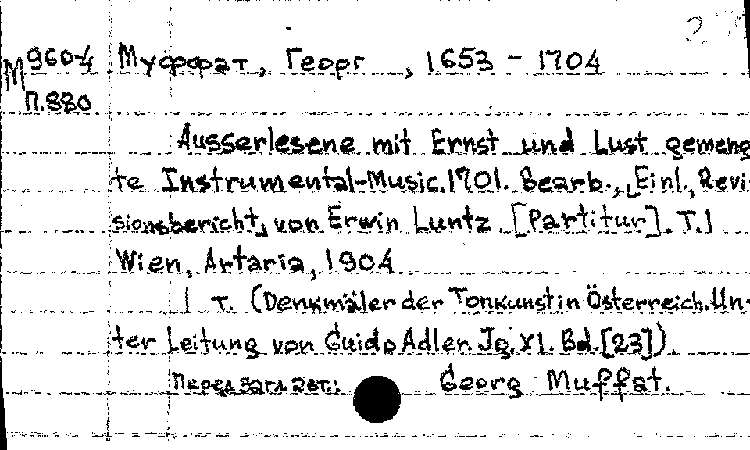 М 960-4 Муффат, Георг, 1653 - 1704
П.880
Ausserlesene mit Ernst und Lust gemeng
te Instrumental-Music.1701. Bearb., [Einl., Revi
sionsbericht] von Erwin Luntz. [Partitur]. T.1
Wien, Artaria, 1904
1 т. (Denkmäler der Tonkunst in Österreich. Un-
ter Leitung von Guido Adler. Jg. XI. Bd. [23])
Перед загл. авт.: Georg Muffat.